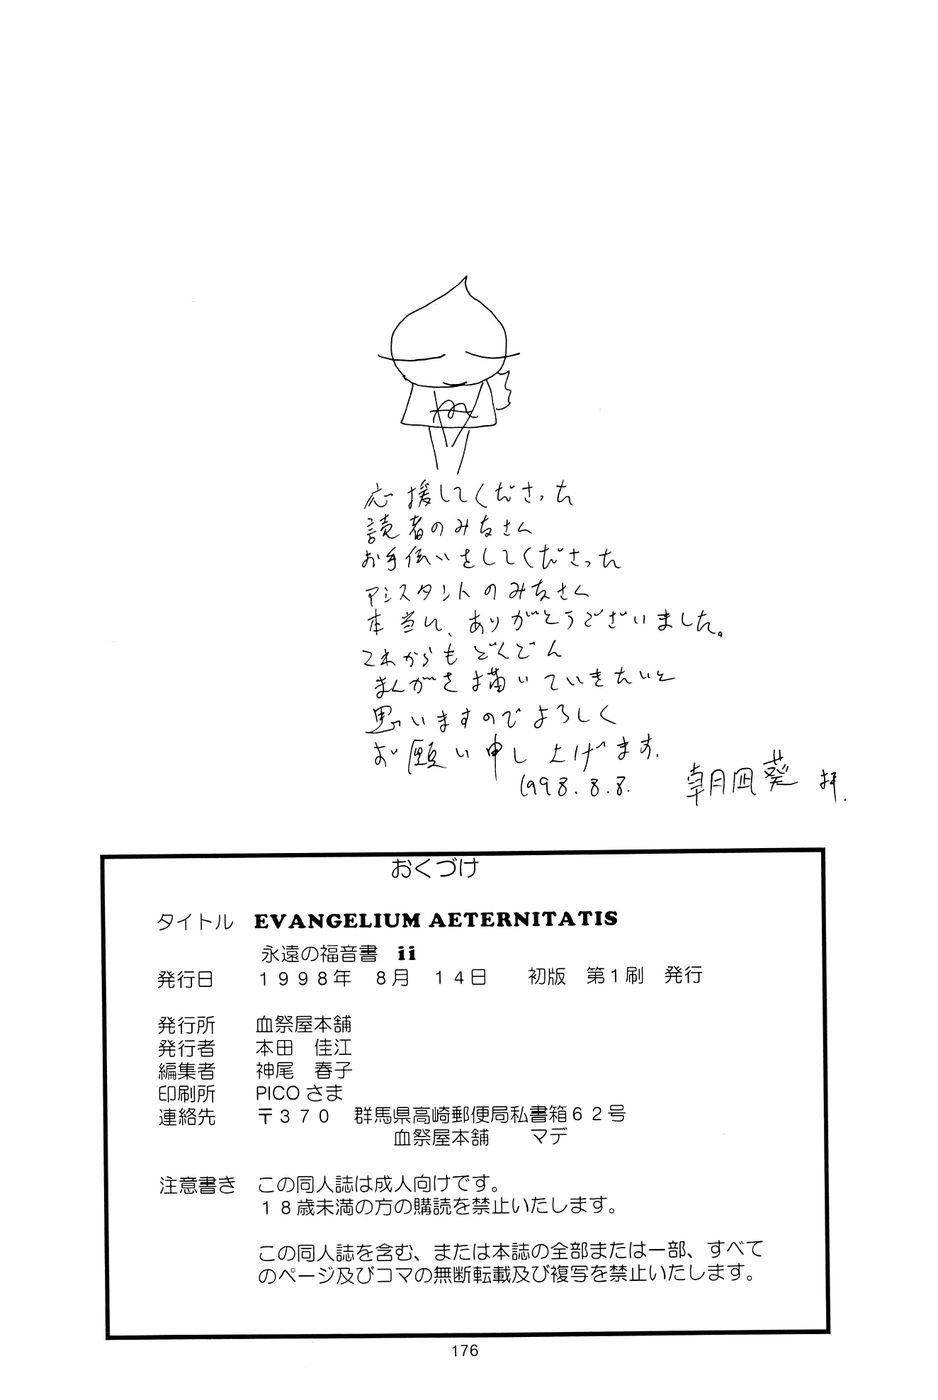 応援してくださった
読者のみなさん
お手伝いをしてくださった
アシスタントのみなさん
本当に、ありがとうございました。
これからもどんどん
まんがを描いていきたいと
思いますのでよろしく
お願い申し上げます。
1998.8.8. 朝凪葵 拝.
おくづけ
タイトル EVANGELIUM AETERNITATIS
永遠の福音書 ii
発行日 1998年 8月 14日 初版 第1刷 発行
発行所 血祭屋本舗
発行者 本田 佳江
編集者 神尾 春子
印刷所 PICOさま
連絡先 〒370 群馬県高崎郵便局私書箱62号
血祭屋本舗 マデ
注意書き この同人誌は成人向けです。
18歳未満の方の購読を禁止いたします。
この同人誌を含む、または本誌の全部または一部、すべて
のページ及びコマの無断転載及び複写を禁止いたします。
176